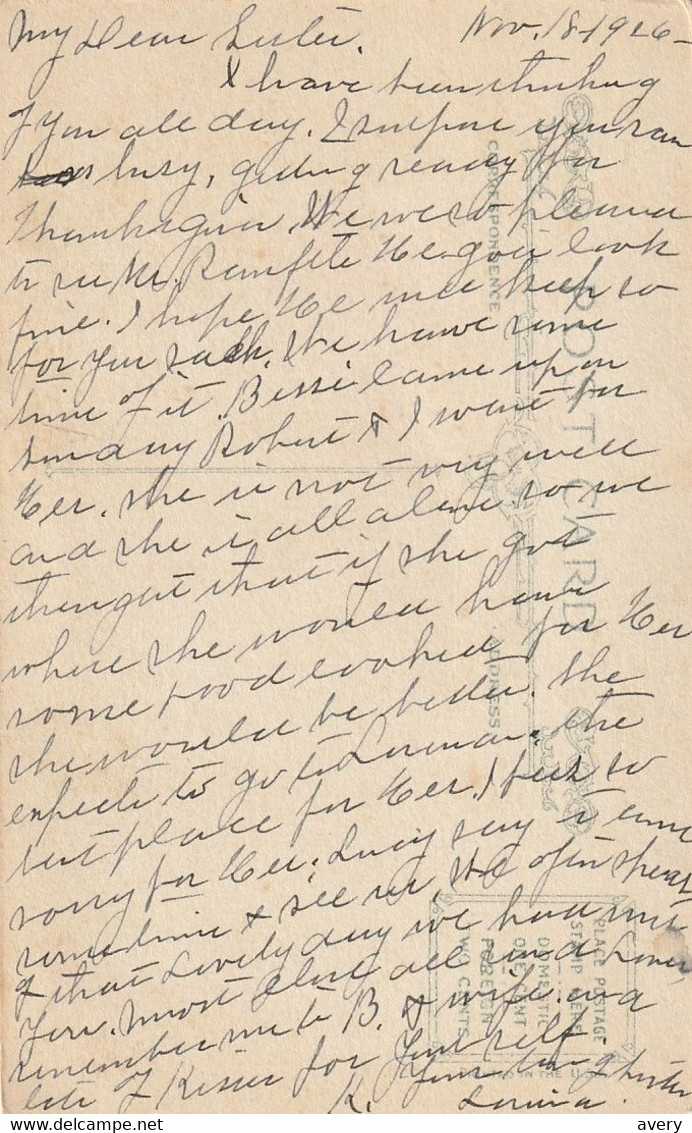 My Dear Sister. Nov. 18-1926-
I have been thinking
of you all day. I suppose you are
busy, getting ready for
Thanksgiving. We were so pleased
to see Mr. He. you look
fine. I hope He will keep so
for your sake. We have some
time of it. Bessie came up on
Sunday Robert & I went for
Her. she is not very well
and she is all alone so we
thought that if she got
where she would have
some food cooked for Her
she would be better. She
expects to go to the
best place for Her. I feel so
sorry for Her. Lucy say to come
some time & see us, We often speak
of that Lovely day we had with
you. must close all send Love
remember me to B. & wife. and
lots of Kisses for your self.
K. Your loving Sister
CORRESPONDENCE
POST CARD
ADDRESS
PLACE POSTAGE
STAMP HERE
DOMESTIC
ONE CENT
FOREIGN
TWO CENTS